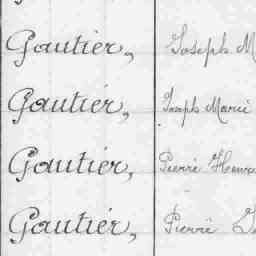 Gautier, Joseph M
Gautier, Joseph Marie
Gautier, Pierre Henri
Gautier, Pierre